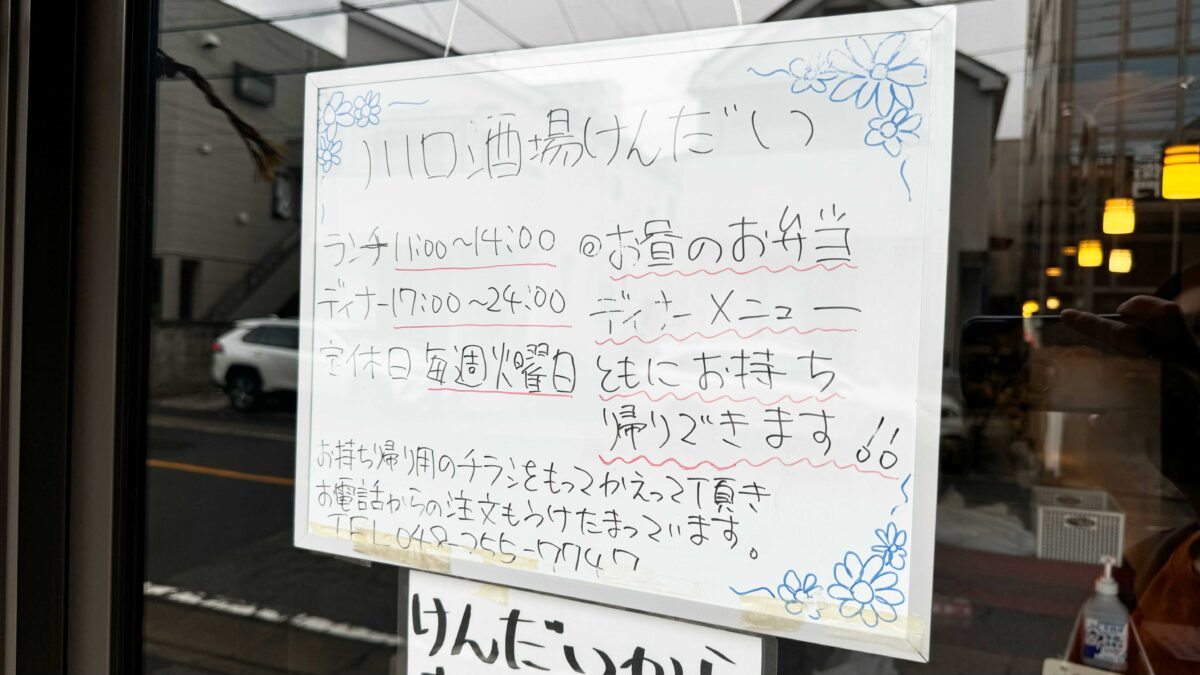 川口酒場けんだい
ランチ 11:00～14:00
ディナー 17:00～24:00
定休日 毎週火曜日
@お昼のお弁当
ディナーメニュー
ともにお持ち
帰りできます!!
お持ち帰り用のチラシをもってかえって頂き
お電話からの注文もうけたまっています。
TEL 048-255-7747
けんだいから